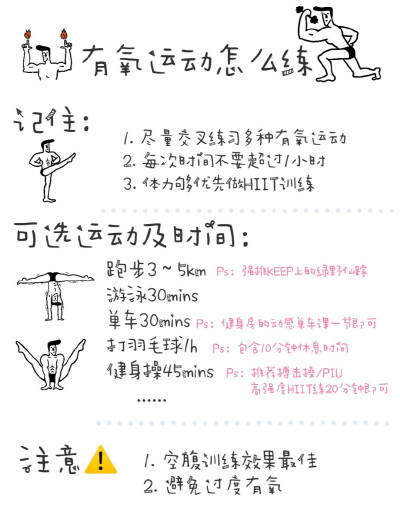 有氧运动怎么练
记住:
1. 尽量交叉练习多种有氧运动
2. 每次时间不要超过1小时
3. 体力够优先做HIIT训练
可选运动及时间:
跑步3~5km Ps: 强推KEEP上的绿野仙踪
游泳30mins
单车30mins Ps: 健身房的动感单车课一节即可
打羽毛球1h Ps: 包含10分钟休息时间
健身操45mins Ps: 推荐搏击操/PIU
高强度HIIT练20分钟即可
......
注意
1. 空腹训练效果最佳
2. 避免过度有氧